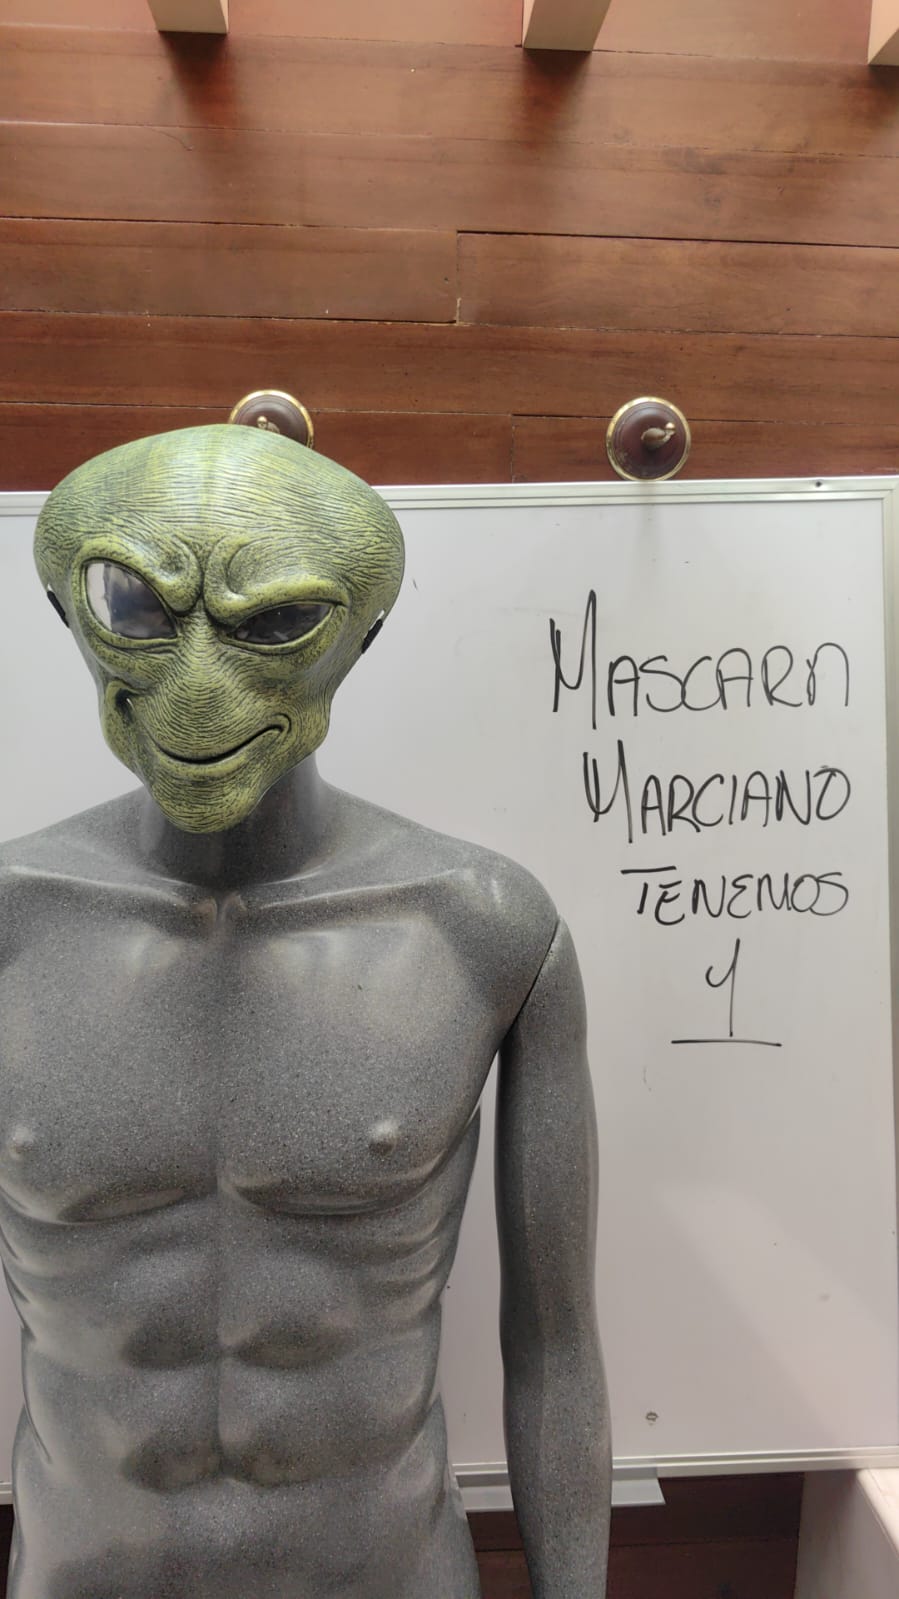 MASCARA
MARCIANO
TENEMOS
1